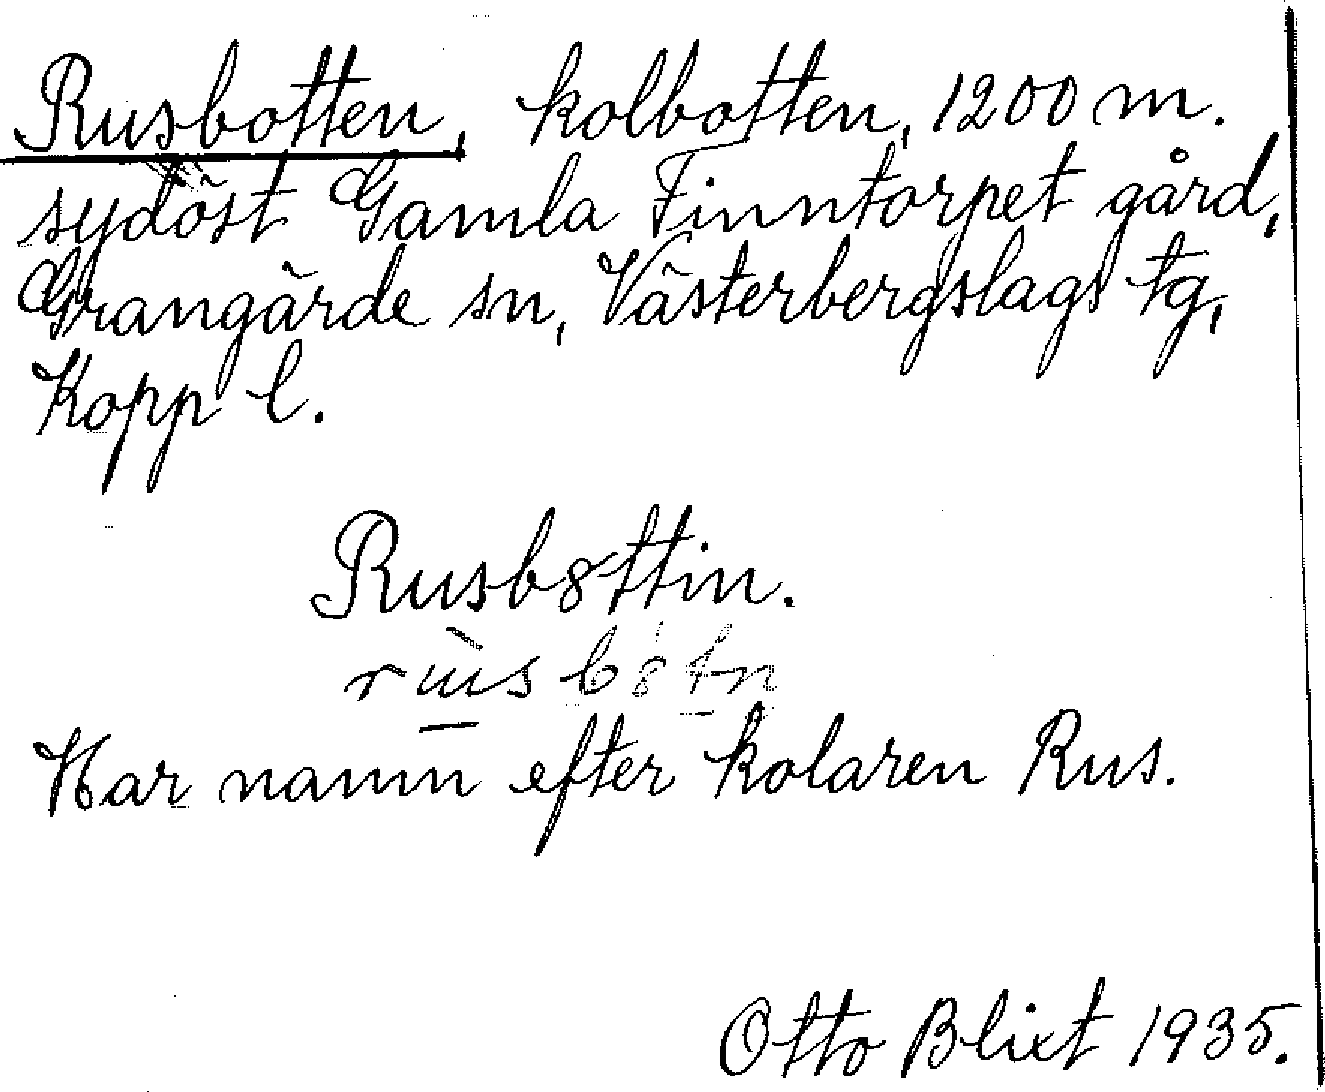 Rusbotten, kolbotten, 1200 m.
sydöst Gamla Finntorpet gård,
Grangärde sn, Västerbergslags tg,
Kopp l.
Rusb8ttin.
Har namn efter kolaren Rus.
Otto Blixt 1935.